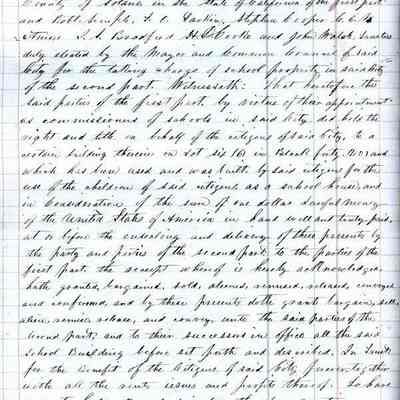 County of Solano in the State of California of the first part
and Robt Semple, F. O. Larkin, Stephen Cooper
L. S. Bradford and John Walsh Trustees
duly elected by the Mayor and Common Council of said
City for the taking charge of school property in said City
of the second part. Witnesseth: That heretofore the
said parties of the first part, by virtue of their appointment
as commissioners of schools in said City did hold the
right and title in behalf of the citizens of said City, to a
certain building therein on Lot six (6) in Block forty and
which has been used and was built by said citizens for the
use of the children of said citizens as a school house, and
in consideration of the sum of one dollar lawful money
of the United States of America in hand well and truly paid,
at or before the ensealing and delivery of these presents by
the party and parties of the second part to the parties of the
first part the receipt whereof is hereby acknowledged,
hath granted, bargained, sold, aliened, remised, released, conveyed
and confirmed, and by these presents doth grant bargain, sell,
alien, remise, release, and convey, unto the said parties of the
second part, and to their successors in office all the said
School Building before set forth and described. In Trust
for the benefit of the Citizens of said City forever, together
with all the rents issues and profits thereof. To have